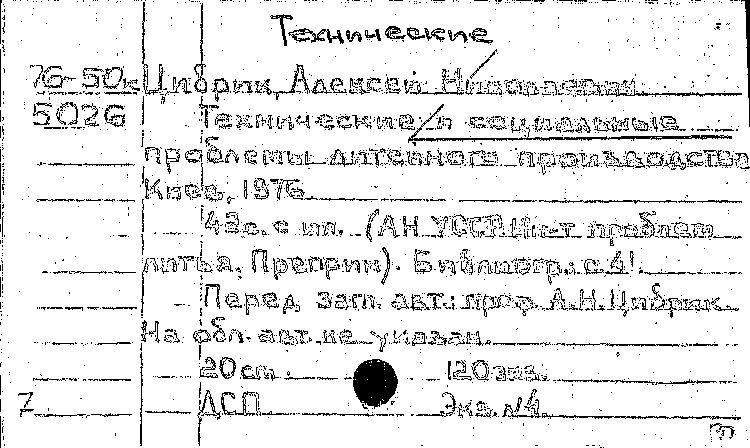 Технические
76-50к Цибрик, Алексей Николаевич.
5026 Технические и социальные
проблемы литейного производства
Киев, 1976.
43с. с ил. (АН УССР. Ин-т проблем
литья. Препринт). Библиогр.: с. 41.
Перед загл. авт.: проф. А.Н. Цибрик.
На обл. авт. не указан.
20 см. 120 экз.
7 ДСП Экз. №4.